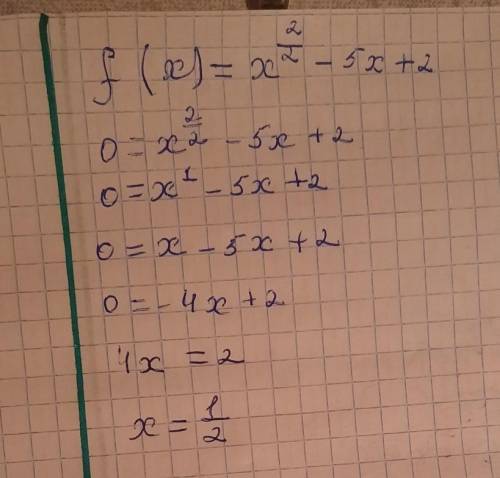 f (x) = x^(2/2) - 5x + 2
0 = x^(2/2) - 5x + 2
0 = x^1 - 5x + 2
0 = x - 5x + 2
0 = - 4x + 2
4x = 2
x = 1/2